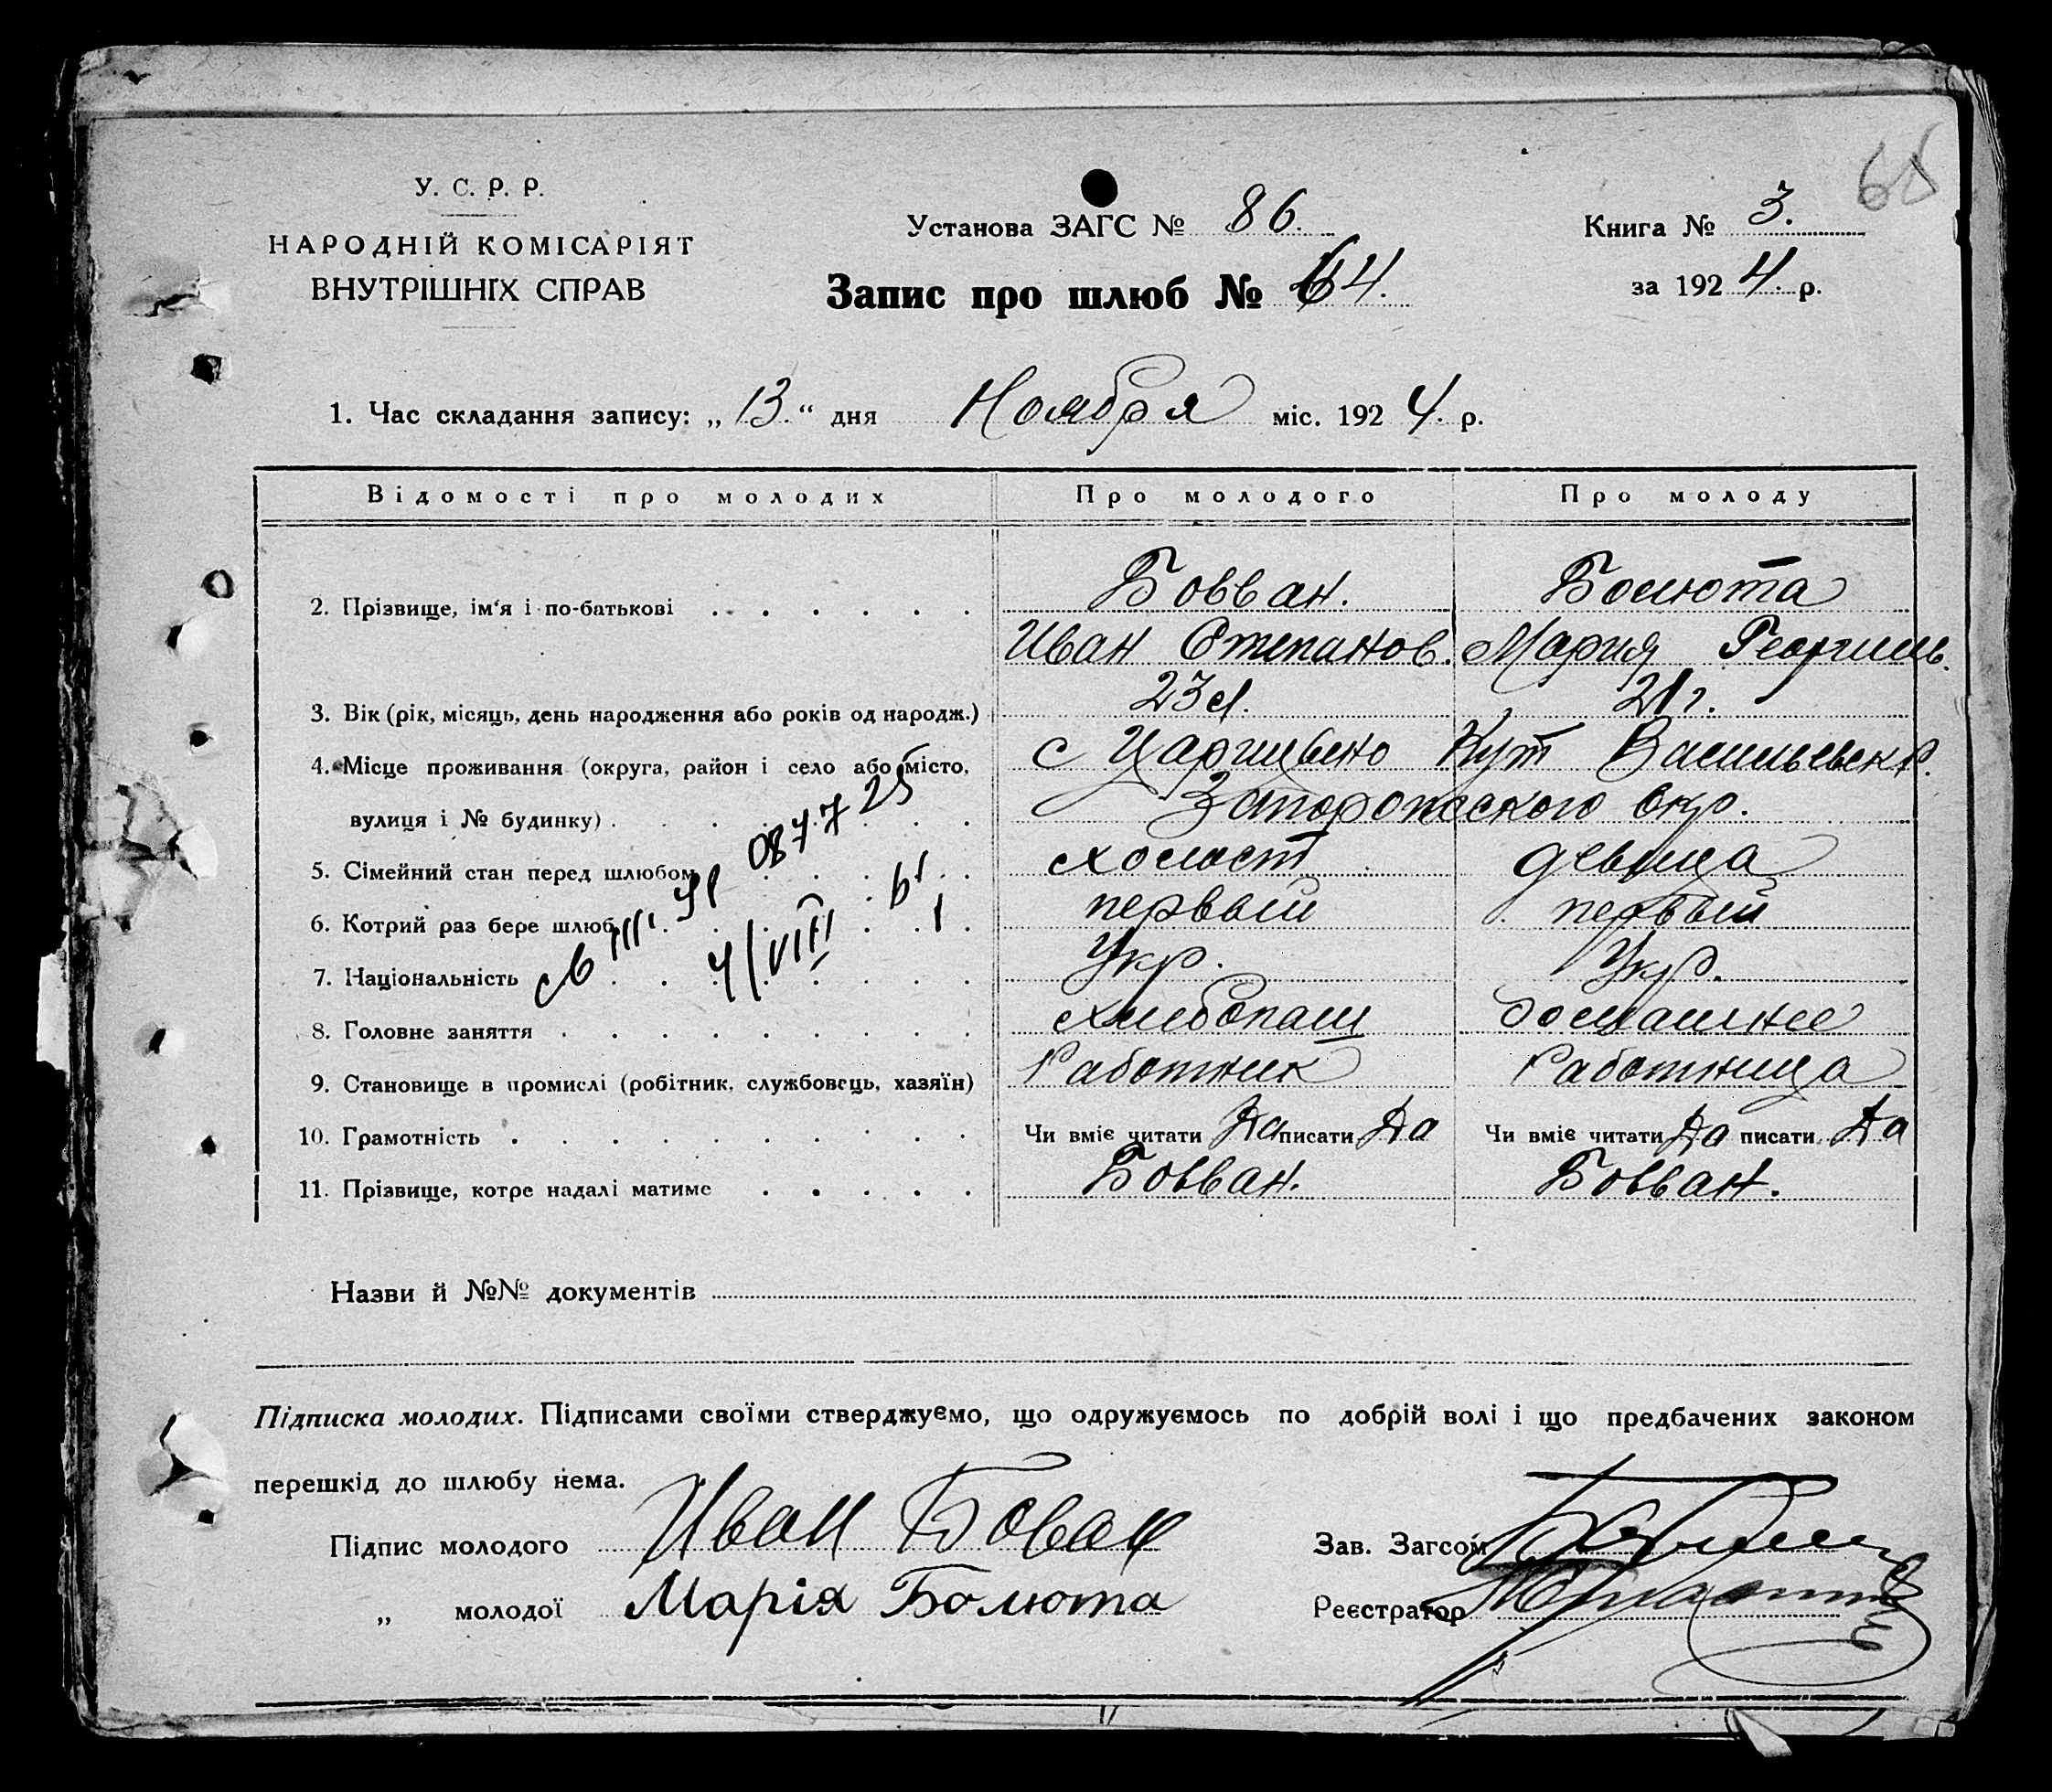 68
У. С. Р. Р.
НАРОДНІЙ КОМІСАРІЯТ
ВНУТРІШНІХ СПРАВ
Установа ЗАГС № 86.
Запис про шлюб № 64.
Книга № 3.
за 1924. р.
1. Час складання запису: „13.“ дня Ноября міс. 1924. р.
Відомості про молодих Про молодого Про молоду
2. Прізвище, ім‘я і по-батькові Бовван. Болюта
Иван Степанов. Мария Георгиев.
3. Вік (рік, місяць, день народження або років од народж.) 23 л. 21 г.
4. Місце проживання (округа, район і село або місто, с Царицыно Кут Васильевск р.
вулиця і № будинку) Запорожского окр.
5. Сімейний стан перед шлюбом холост девица
6. Котрий раз бере шлюб первый первый
7. Національність Укр. Укр.
8. Головне заняття хлебопаш домашнее
9. Становище в промислі (робітник, службовець, хазяїн) Работник Работница
10. Грамотність Чи вміє читати Да писати Да Чи вміє читати Да писати Да
11. Прізвище, котре надалі матиме Бовван. Бовван.
Назви й №№ документів
Підписка молодих. Підписами своїми стверджуємо, що одружуємось по добрій волі і що предбачених законом
перешкід до шлюбу нема.
Підпис молодого Иван Бован
„ молодої Марія Болюта
Зав. Загсом
Реєстратор